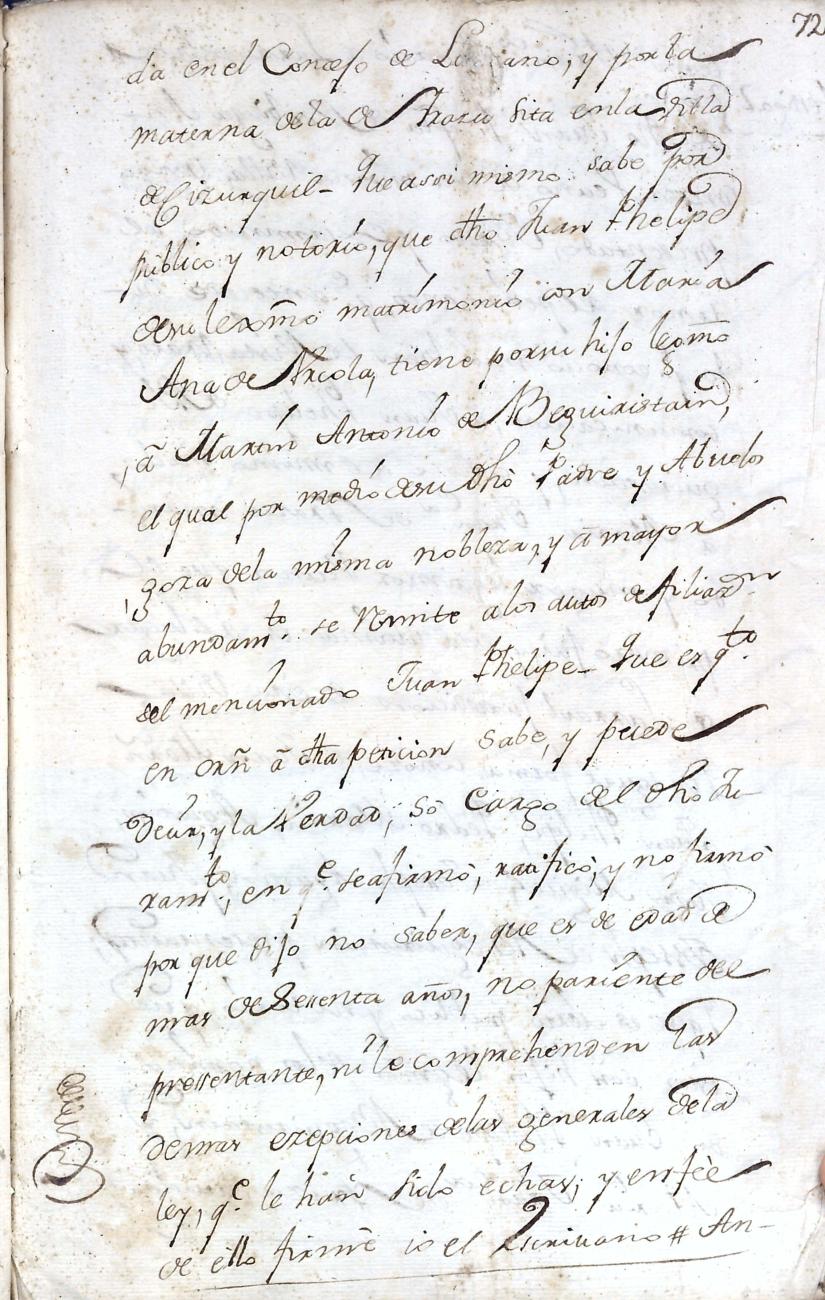 72
da en el Concejo de Lazcano, y por la
materna de la de Sharu sita en la Villa
de Cizurquil- Que assi mismo sabe por
publico y notorio, que dho Juan Phelipe
de su lexmo matrimonio con Maria
Ana de Urcola, tiene por su hijo legmo
, â Martin Antonio de Beguiristain,
el qual por medio de su dho Padre y Abuelos
goza de la misma nobleza, y â mayor
abundamto. se remite a los autos de filiazon
del mencionado Juan Phelipe- Que es qto.
en orñ â dha peticion sabe, y puede
Decir, y la Verdad, sô cargo del dho Ju-
ramto., en qe. se afirmô, ratificô, y no firmô
por que dijo no saber, que es de edad de
mas de Sesenta años, no pariente del
pressentante, ni le comprehenden las
demas exepciones de las generales de la
ley, qe. le han sido echas, y en fèe
de ello firmê io el Escrivano # An-